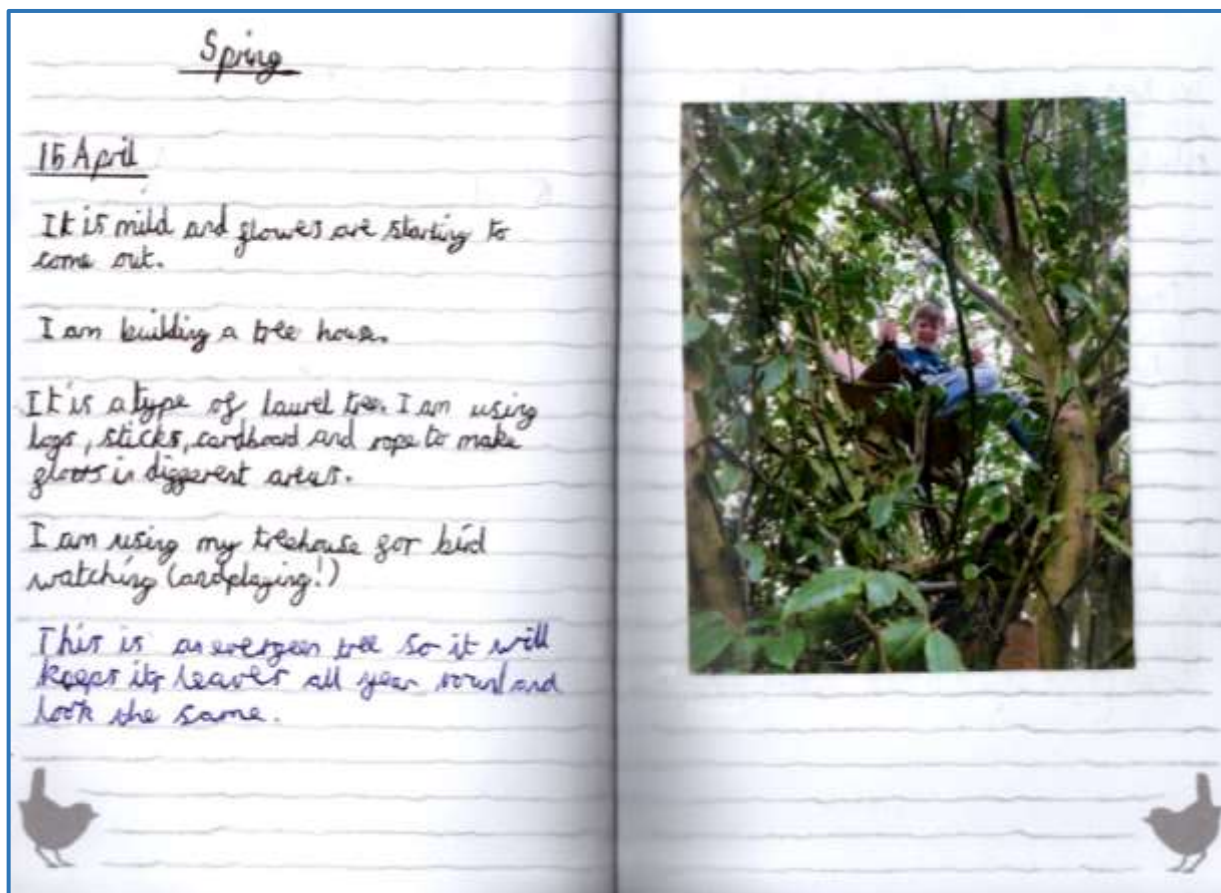 Spring
15 April
It is mild and flowers are starting to
come out.
I am building a tree house.
It is a type of laurel tree. I am using
logs, sticks, cardboard and rope to make
floors in different areas.
I am using my treehouse for bird
watching (and playing!)
This is an evergreen tree so it will
keeps its leaves all year round and
look the same.